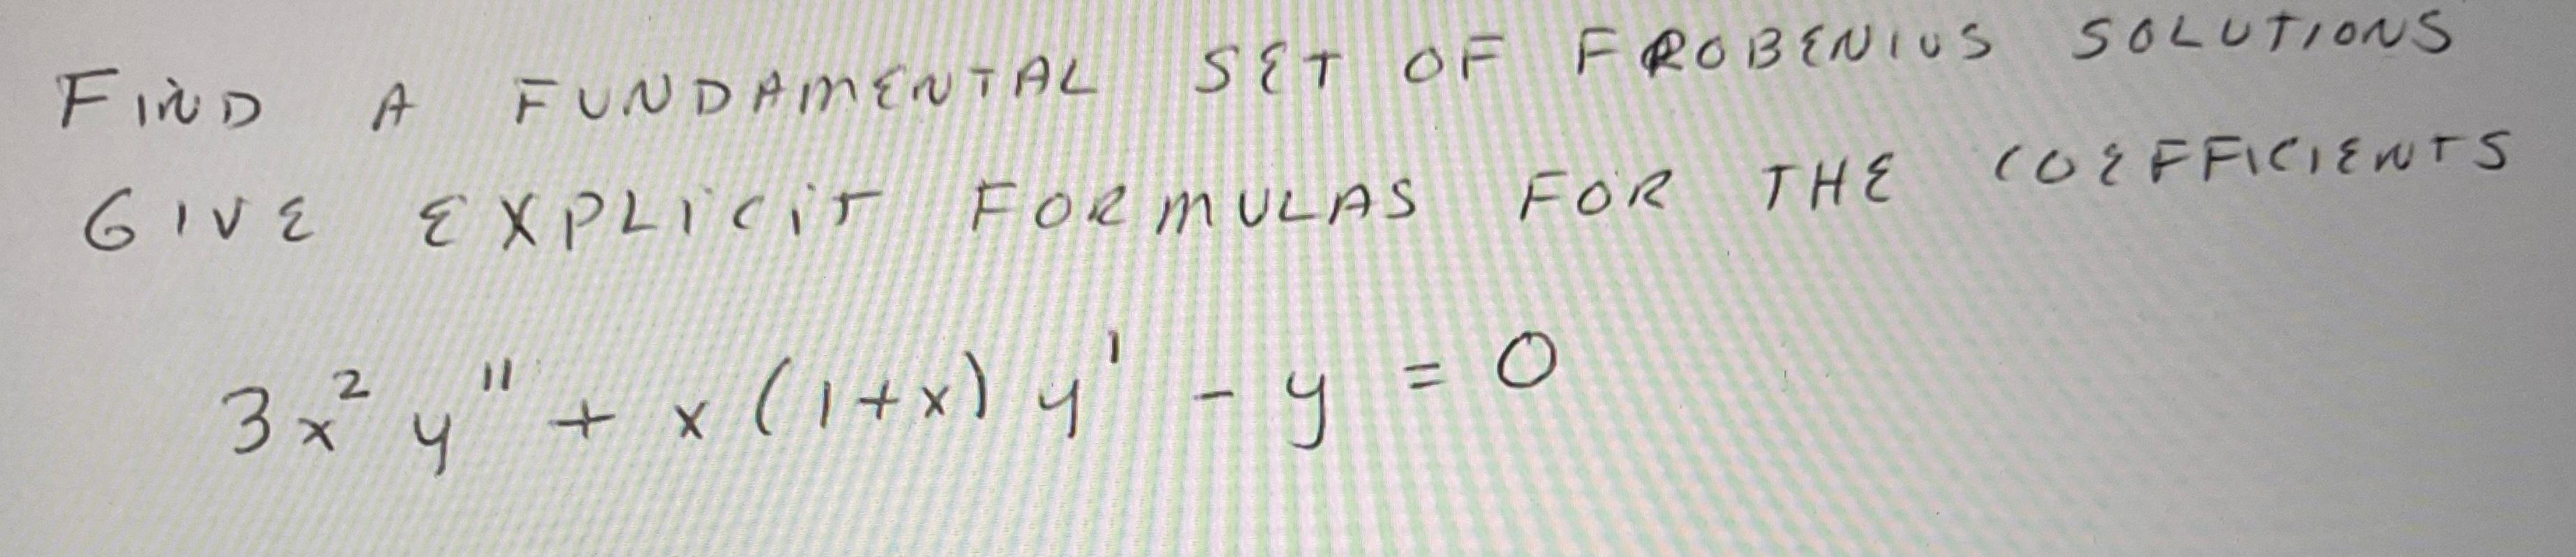 FIND A FUNDAMENTAL SET OF FROBENIUS SOLUTIONS
GIVE EXPLICIT FORMULAS FOR THE COEFFICIENTS
3x² y'' + x (1+x) y' - y = 0